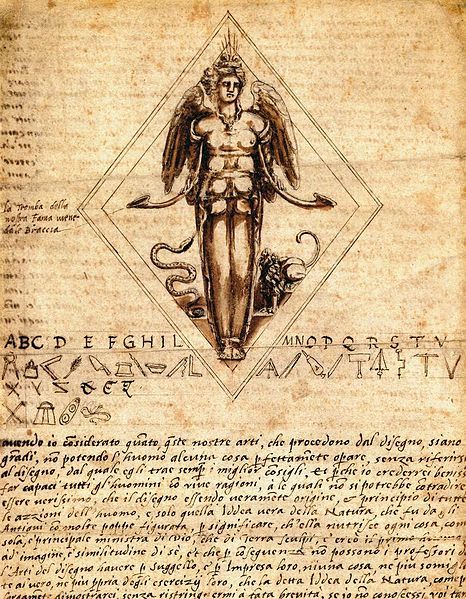 la Tromba della
nostra Fama viene
da le Braccia
ABCD EFGHIL MNOPQRSTV
X Y Z
avendo io cōsiderato quāto q̄ste nostre arti, che procedono dal disegno, siano
gradi, nō potendo l'huomo alcuna cosa pfettamēte opare, senza riferirsi
al disegno, dal quale egli trae semp i miglior cōsigli, et pche io crederrei benissi
far capaci tutti gli huomini cō vive ragioni, à le quali nō si potrebbe cōtradire
essere verissimo, che il disegno essendo veramēte origine, e principio di tutte
le azzioni dell'huomo, e solo quella Iddea vera della Natura, che fu da gli
Antichi cō molte poppe figurata, p significare, ch'ella nutrisce ogni cosa, com
sola, e principale ministra di Dio, che di Terra sculpì, e creò il primo
ad imagine, e similitudine di se, et che p cōsequenza nō possono i professori d
l'Arti del disegno havere p suggello, e p Impresa loro, niuna cosa, ne più somig
te al vero, ne piu ppria degli esercizij loro, che la detta Idea della Natura, come p
largamēte dimostrare, senza ristrignermi a tāta brevità, se io nō conoscessi, voi tut